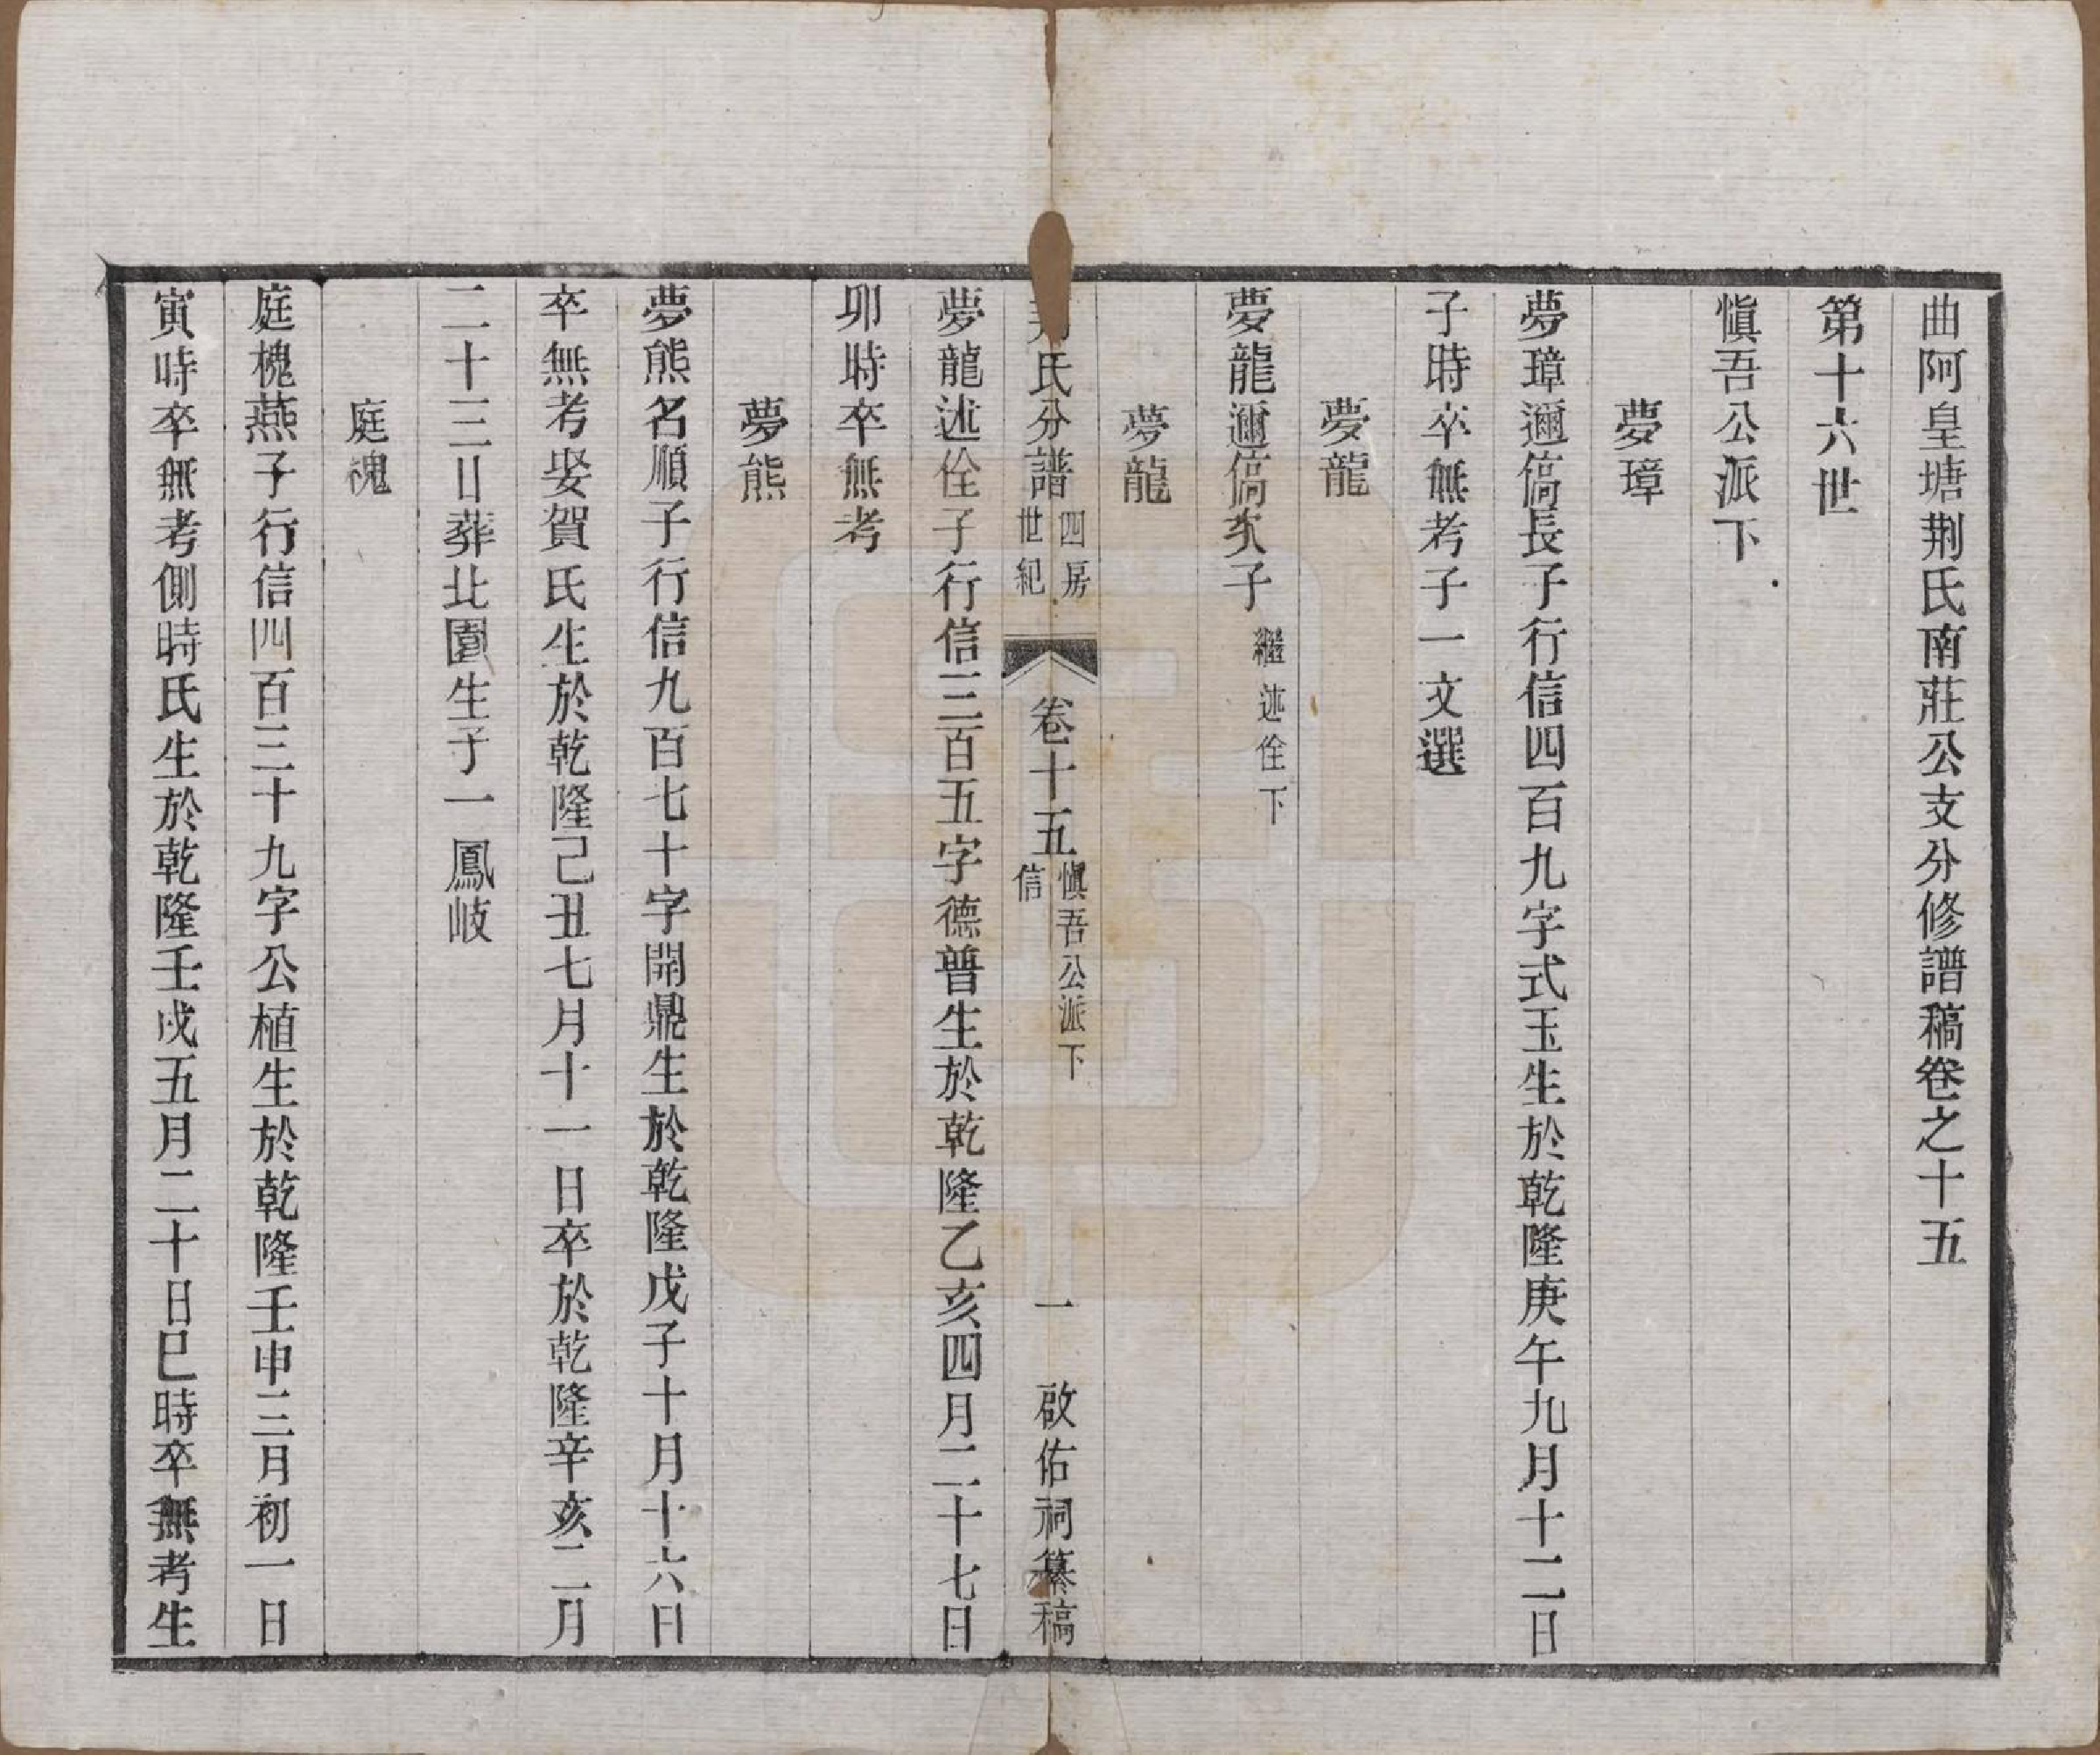 曲阿皇塘荆氏南莊公支分修譜稿卷之十五
第十六世
愼吾公派下
夢璋
夢璋邇傐長子行信四百九字式玉生於乾隆庚午九月十二日
子時卒無考子一文選
夢龍
夢龍邇傐次子繼述佺下
夢龍
氏分譜四房世紀 卷十五愼吾公派下信 一 啟佑祠纂稿
夢龍述佺子行信三百五字德普生於乾隆乙亥四月二十七日
卯時卒無考
夢熊
夢熊名順子行信九百七十字開鼎生於乾隆戊子十月十六日
卒無考娶賀氏生於乾隆己丑七月十一日卒於乾隆辛亥二月
二十三日葬北園生子一鳳岐
庭槐
庭槐燕子行信四百三十九字公植生於乾隆壬申三月初一日
寅時卒無考側時氏生於乾隆壬戌五月二十日巳時卒無考生